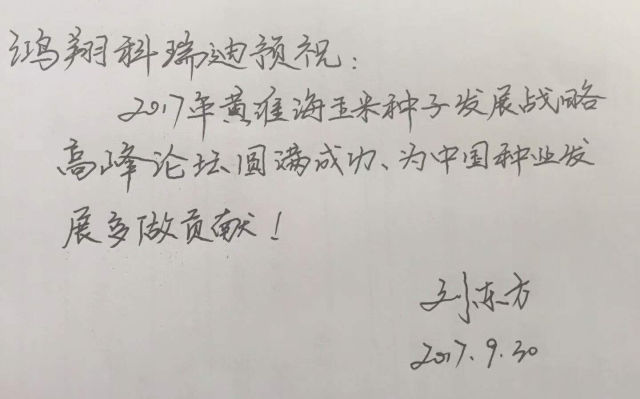 鸿翔科瑞迪预祝:
2017年黄淮海玉米种子发展战略
高峰论坛圆满成功、为中国种业发
展多做贡献!
刘东方
2017.9.30